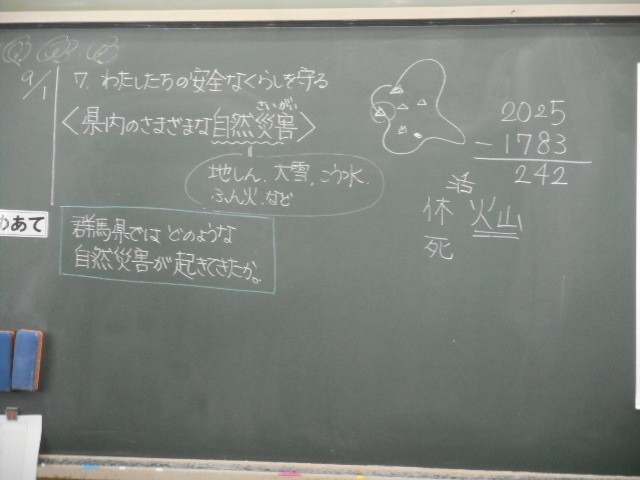 9/1
7. わたしたちの安全なくらしを守る
さいがい
〈県内のさまざまな自然災害〉
地しん、大雪、こう水、
ふん火、など
めあて
群馬県では どのような
自然災害が起きてきたか。
2025
- 1783
242
活
休 火山
死